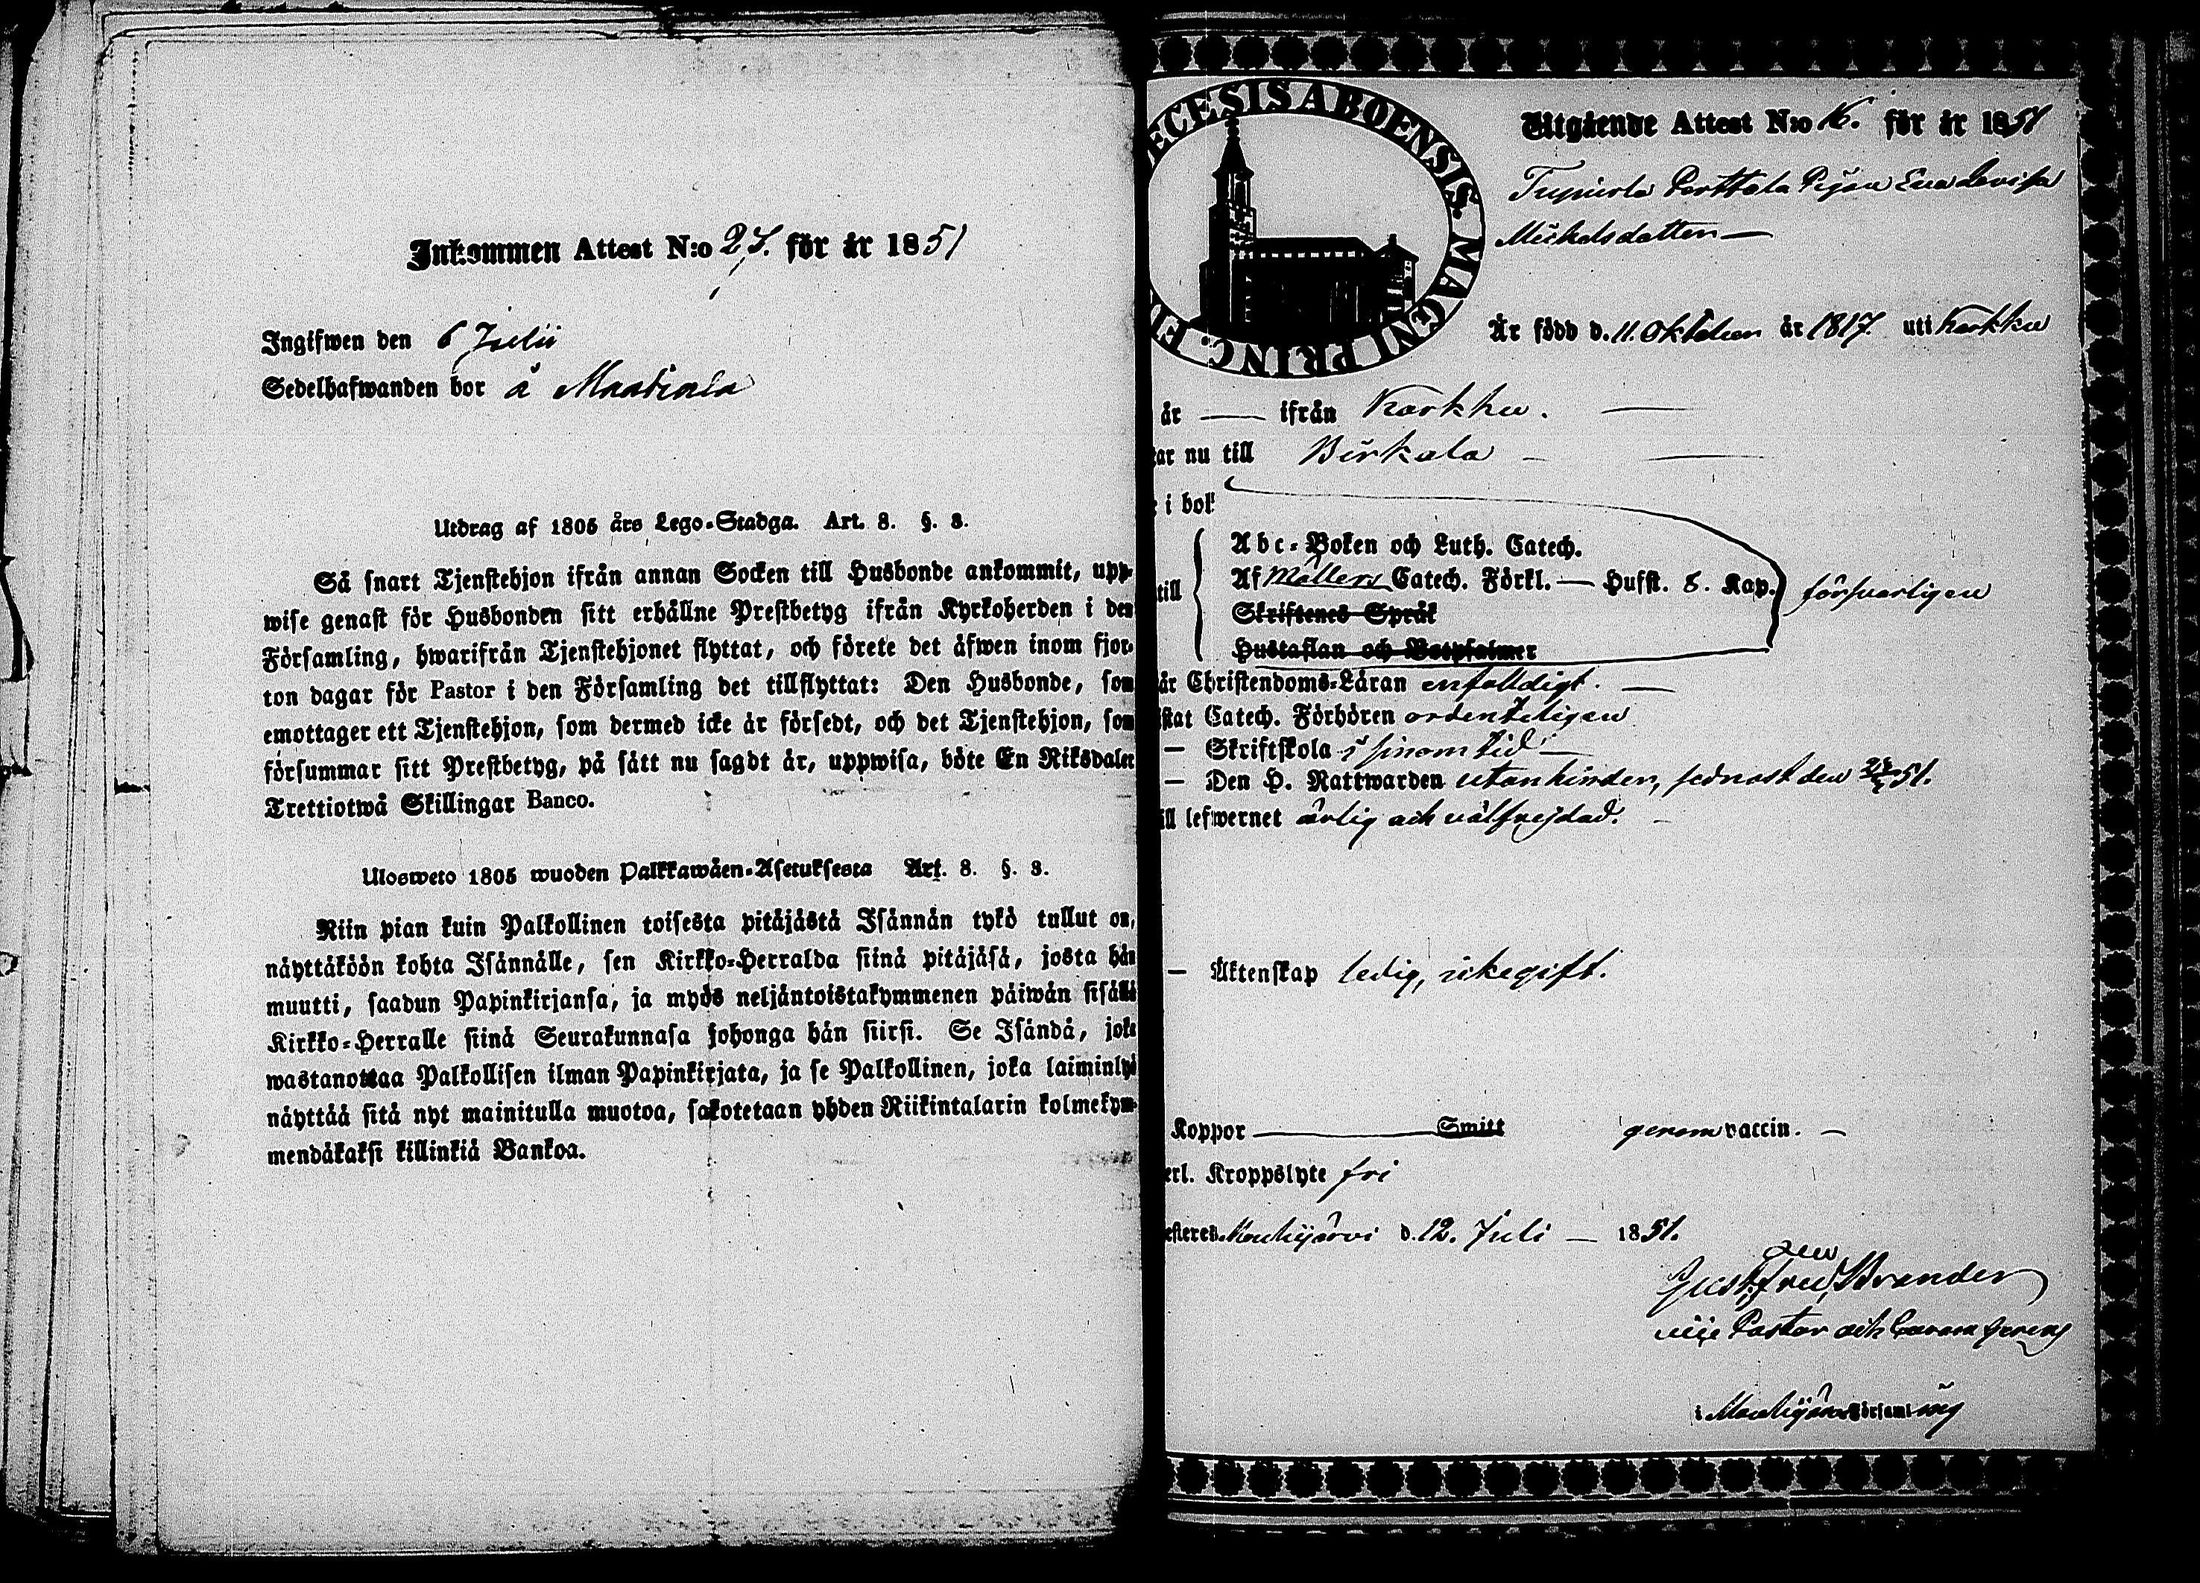 Inkommen Attest N:o 27. för år 1851
Ingifwen den 6 Julii
Sedelhafwanden bor å
Utdrag af 1805 års Lego-Stadga. Art. 8. §. 3.
Så snart Tjenstehjon ifrån annan Socken till Husbonde ankommit, upp-
wise genast för Husbonden sitt erhållne Prestbetyg ifrån Kyrkoherden i den
Församling, hwarifrån Tjenstehjonet flyttat, och förete det äfwen inom fjor-
ton dagar för Pastor i den Församling det tillflyttat: Den Husbonde, som
emottager ett Tjenstehjon, som dermed icke är försedt, och det Tjenstehjon, som
försummar sitt Prestbetyg, på sätt nu sagdt är, uppwisa, böte En Riksdaler
Trettiotwå Skillingar Banco.
Ulosweto 1805 wuoden Palkkawäen-Asetuksesta Art. 8. §. 3.
Niin pian kuin Palkollinen toisesta pitäjästä Isännän tykö tullut on,
näyttäköön kohta Isännälle, sen Kirkko-Herralda siinä pitäjäsä, josta hän
muutti, saadun Papinkirjansa, ja myös neljäntoistakymmenen päiwän sisällä
Kirkko-Herralle siinä Seurakunnasa johonga hän siirsi. Se Isändä, joka
wastanottaa Palkollisen ilman Papinkirjata, ja se Palkollinen, joka laiminlyö
näyttää sitä nyt mainitulla muotoa, sakotetaan yhden Riikintalarin kolmekym-
mendäkaksi killinkiä Bankoa.
ECESIS ABOENSIS. MAGNI PRINC. FI
Utgående Attest N:o 16. för år 1851
Perttala Pigan Eva Lovisa
Michelsdotter
Är född d. 11. Oktober år 1817. uti Karkku
år — ifrån Karkku.
tar nu till Birkala
i bok
Abc-Boken och Luth. Catech.
till Af Möllers Catech. Förkl. — Hufst. 8. Kap. försvarligen
Skriftenes Språk
Hustaflan och Botpsalmer
är Christendoms-Läran enfaldigt.
istat Catech. Förhören ordenteligen
— Skriftskola i sinom tid
— Den H. Nattwarden utan hinder, sednast den 51.
ill lefwernet ärlig och välfrejdad.
— Äktenskap ledig, icke gift.
Koppor — Smitt genom vaccin.
erl. Kroppslyte fri
esteres. Mouhijärvi d. 12. Juli — 1851.
Gust. Fred. Strander
vice Pastor
i Mouhijärvi Församling